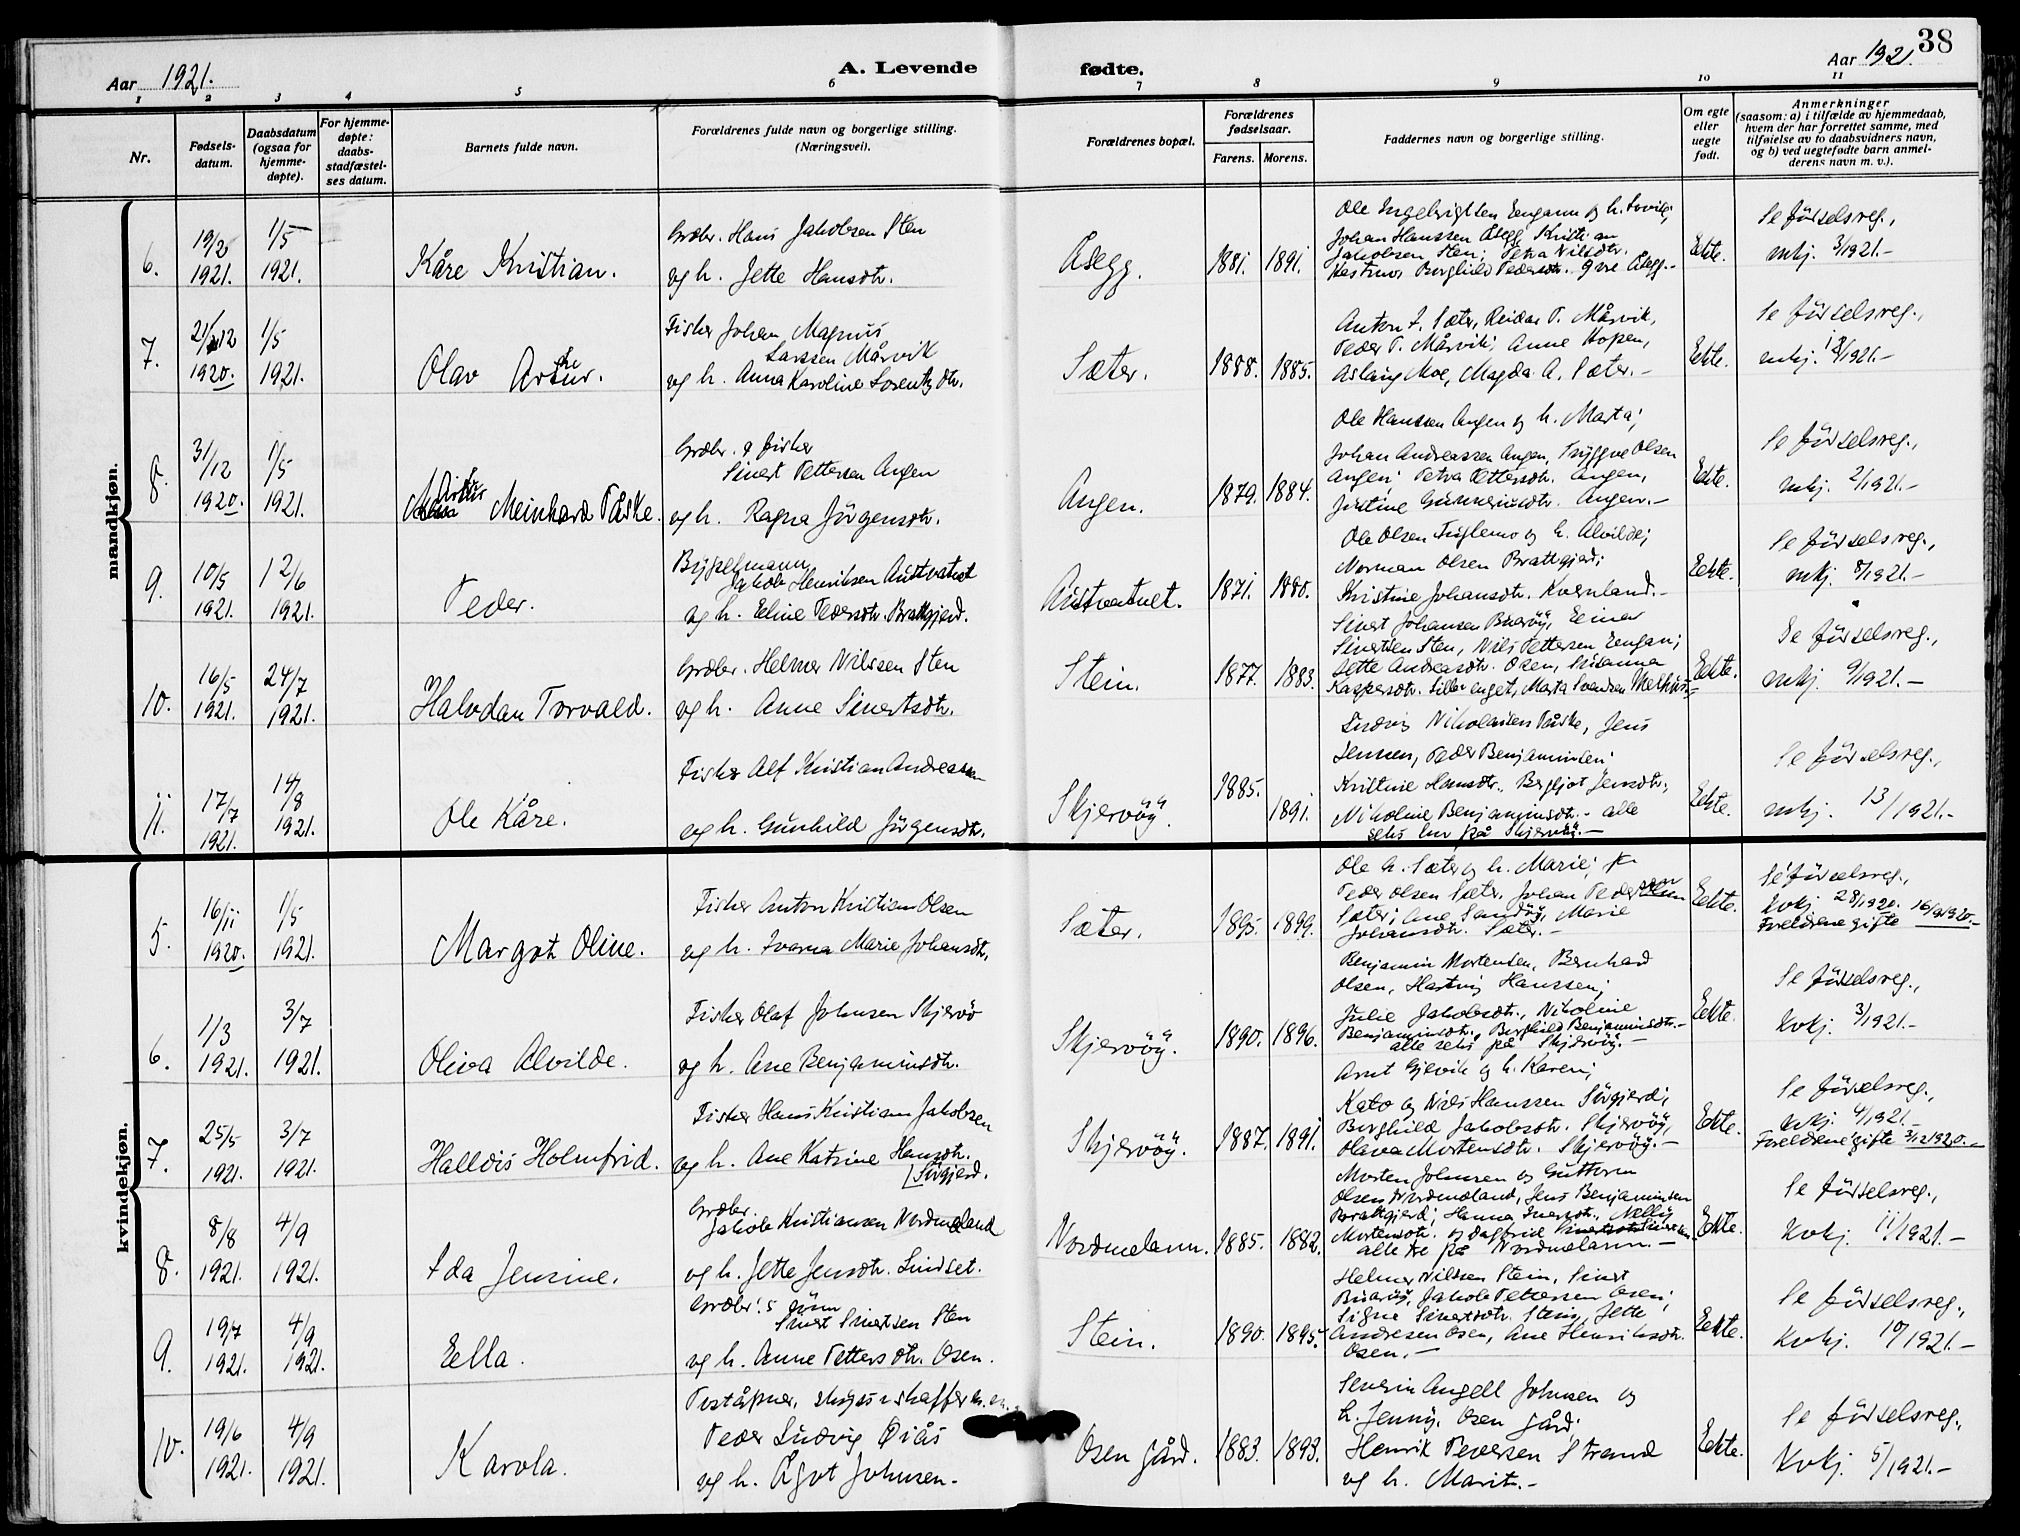 38
Aar 1921.
A. Levende fødte.
Aar 1921.
1 2 3 4 5 6 7 8 9 10 11
Nr.
Fødsels-
datum.
Daabsdatum
(ogsaa for
hjemme-
døpte).
For hjemme-
døpte:
daabs-
stadfæstel-
ses datum.
Barnets fulde navn.
Forældrenes fulde navn og borgerlige stilling.
(Næringsvei).
Forældrenes bopæl.
Forældrenes
fødselsaar.
Farens. Morens.
Faddernes navn og borgerlige stilling.
Om egte
eller
uegte
født.
Anmerkninger
(saasom: a) i tilfælde av hjemmedaab,
hvem der har forrettet samme, med
tilføielse av to daabsvidners navn,
og b) ved uegtefødte barn anmel-
derens navn m. v.).
mandkjøn.
6.
19/2
1921.
1/5
1921.
Kåre Kristian.
Grdbr. Hans Jakobsen Sten
og h. Jette Hansdtr.
Åsegg.
1881. 1891.
Ole Engebrigtsen Eengann og h. Lovise;
Johan Hanssen Åsegg, Kristian
Jakobsen Sten; Petra Nilsdtr.
Borghild Pedersdtr. Øvre Åsegg.-
Ekte.
Se fødselsreg.,
mkj. 3/1921.-
7.
21/12
1920.
1/5
1921.
Olav Artur.
Fisker Johan Magnus
Larssen Mårvik
og h. Anna Karoline Lorentzdtr.
Sæter.
1888. 1885.
Anton J. Sæter, Reidar P. Mårvik,
Peder P. Mårvik; Anne Hopen,
Aslaug Moe, Magda A. Sæter.-
Ekte.
Se fødselsreg.,
mkj. 1/1921.-
8.
31/12
1920.
1/5
1921.
Artur Meinhard Påske.
Grdbr. & fisker
Sivert Pettersen Angen
og h. Ragna Jörgensdtr.
Angen.
1879. 1884.
Ole Hanssen Angen og h. Marta;
Johan Andreassen Angen, Tryggve Olsen
Angen; Petra Pettersdtr. Angen,
Justine Gunneriusdtr. Angen.-
Ekte.
Se fødselsreg.,
mkj. 2/1921.-
9.
10/5
1921.
12/6
1921.
Peder.
Bygselmann
Jakob Henriksen Austvatnet
og h. Eline Pedersdtr. Brattgjerd.
Austvatnet.
1871. 1880.
Ole Olsen Fuglemo og h. Alvilde;
Norman Olsen Brattgjerd;
Kristine Johansdtr. Kvernland.-
Ekte.
Se fødselsreg.,
mkj. 8/1921.-
10.
16/5
1921.
24/7
1921.
Halvdan Torvald.
Grdbr. Helmer Nilssen Sten
og h. Anne Sivertsdtr.
Stein.
1877. 1883.
Sivert Johansen Buaröy, Einar
Sivertsen Sten, Nils Pettersen Eengan;
Jette Andreasdtr. Osen, Susanna
Kaspersdtr. Sætterenget, Marta Svendsen Melhus.-
Ekte.
Se fødselsreg.,
mkj. 9/1921.-
11.
17/7
1921.
14/8
1921.
Ole Kåre.
Fisker Alf Kristian Andreassen
og h. Gunhild Jörgensdtr.
Skjervöy.
1885. 1891.
Ludvig Nikolaisen Påske, Jens
Jenssen, Peder Benjaminsen;
Kristine Hansdtr., Bergljot Jensdtr.,
Nikoline Benjaminsdtr.- alle
seks bur på Skjervöy.-
Ekte.
Se fødselsreg.,
mkj. 13/1921.-
kvindekjøn.
5.
16/11
1920.
1/5
1921.
Margot Oline.
Fisker Anton Kristian Olsen
og h. Ivarna Marie Johansdtr.
Sæter.
1895. 1899.
Ole A. Sæter og h. Marie;
Peder Olsen Sæter, Johan Pedersen
Sæter; Ane Sandöy, Marie
Johansdtr. Sæter.-
Ekte.
Se fødselsreg.,
Kvkj. 28/1920.
Foreldrene gifte 16/9 1920.-
6.
1/3
1921.
3/7
1921.
Oliva Alvilde.
Fisker Olaf Johnsen Skjervö
og h. Ane Benjaminsdtr.
Skjervöy.
1890. 1896.
Benjamin Mortensen, Bernhard
Olsen, Hartvig Hanssen;
Julie Jakobsdtr., Nikoline
Benjaminsdtr., Borghild Benjaminsdtr.-
alle seks på Skjervöy.-
Ekte.
Se fødselsreg.,
Kvkj. 3/1921.-
7.
25/5
1921.
3/7
1921.
Halldis Holmfrid.
Fisker Hans Kristian Jakobsen
og h. Ane Katrine Hansdtr.
Sörgjerd.
Skjervöy.
1887. 1891.
Arnt Gjelvik og h. Karen;
Kato og Nils Hanssen Sörgjerd;
Borghild Jakobsdtr. Skjervöy,
Olava Mortensdtr. Skjervöy.-
Ekte.
Se fødselsreg.,
Kvkj. 4/1921.-
Foreldrene gifte 3/12 1920.-
8.
8/8
1921.
4/9
1921.
Ida Jensine.
Grdbr.
Jakob Kristiansen Nordmeland
og h. Jette Jensdtr. Lindset.
Nordmelann.
1885. 1882.
Morten Johnsen og Guttorm
Olsen Nordmeland, Jens Benjaminsen
Brattgjerd; Hanna Iversdtr., Nelly
Mortensdtr. og Dagfrid
alle tre på Nordmelann.-
Ekte.
Se fødselsreg.,
Kvkj. 11/1921.-
9.
19/7
1921.
4/9
1921.
Eella.
Grdbr.'s sönn
Sivert Sivertsen Sten
og h. Anne Pettersdtr. Osen.
Stein.
1890. 1895.
Helmer Nilssen Stein, Sivert
Buaröy, Jakob Pettersen Osen;
Signe Sivertsdtr. Stein, Jette
Andresen Osen, Ane Henriksdtr.
Osen.-
Ekte.
Se fødselsreg.,
Kvkj. 10/1921.-
10.
19/6
1921.
4/9
1921.
Karola.
Poståpner, skyss-skaffer m.m.
Peder Ludvig Öiås
og h. Ågot Johnsen.
Osen gård.
1883. 1893.
Severin Angell Johnsen og
h. Jenny, Osen gård;
Henrik Pedersen Strand
og h. Marit.-
Ekte.
Se fødselsreg.,
Kvkj. 5/1921.-